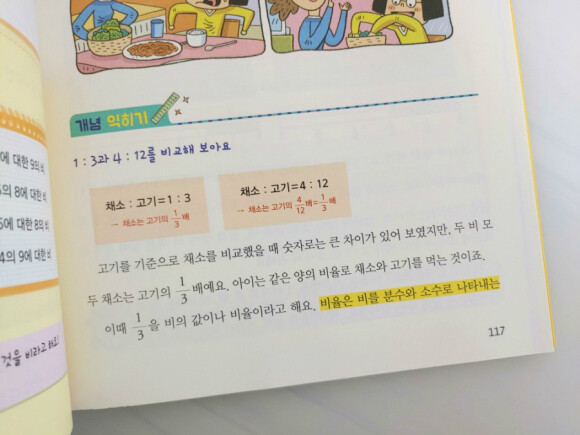 개념 익히기
1 : 3과 4 : 12를 비교해 보아요
채소 : 고기=1 : 3
→ 채소는 고기의 1/3 배
채소 : 고기=4 : 12
→ 채소는 고기의 4/12 배=1/3 배
고기를 기준으로 채소를 비교했을 때 숫자로는 큰 차이가 있어 보였지만, 두 비 모
두 채소는 고기의 1/3 배예요. 아이는 같은 양의 비율로 채소와 고기를 먹는 것이죠.
이때 1/3 을 비의 값이나 비율이라고 해요. 비율은 비를 분수와 소수로 나타내는
117
에 대한 9의 비
의 8에 대한 비
에 대한 8의 비
4의 9에 대한 비
것을 비라고 해요!